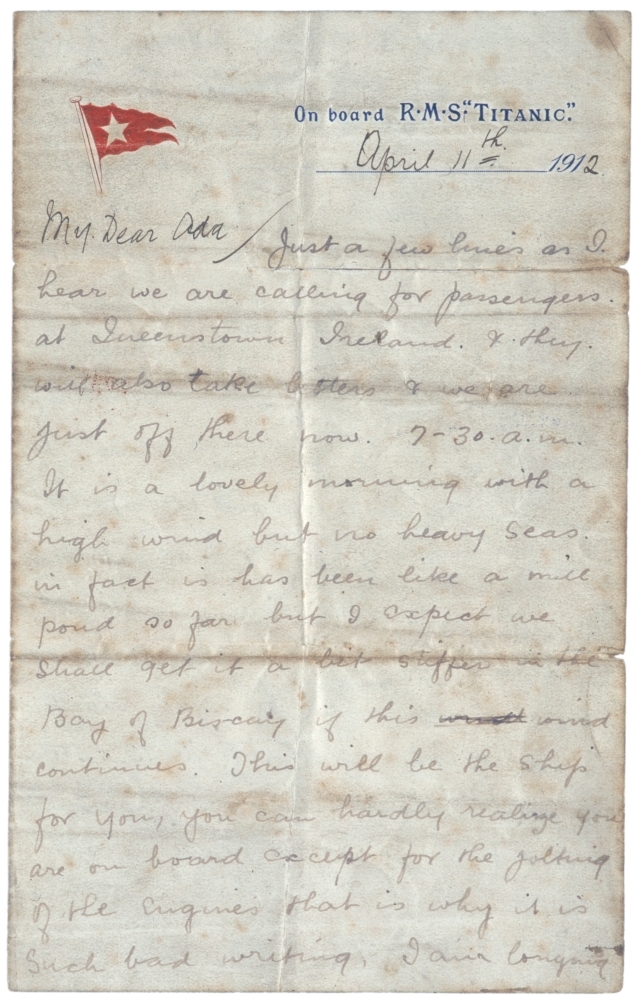 On board R·M·S·"TITANIC."
April 11th 1912
My Dear Ada / Just a few lines as I.
hear we are calling for passengers.
at Queenstown Ireland. & they.
will also take letters & we are
just off there now. 7-30.a.m.
It is a lovely morning with a
high wind but no heavy seas.
in fact is has been like a mill
pond so far but I expect we
shall get it a bit stiffer in the
Bay of Biscay if this wind wind
continues. This will be the ship
for you, you can hardly realize you
are on board except for the jolting
of the engines that is why it is
such bad writing, I am longing